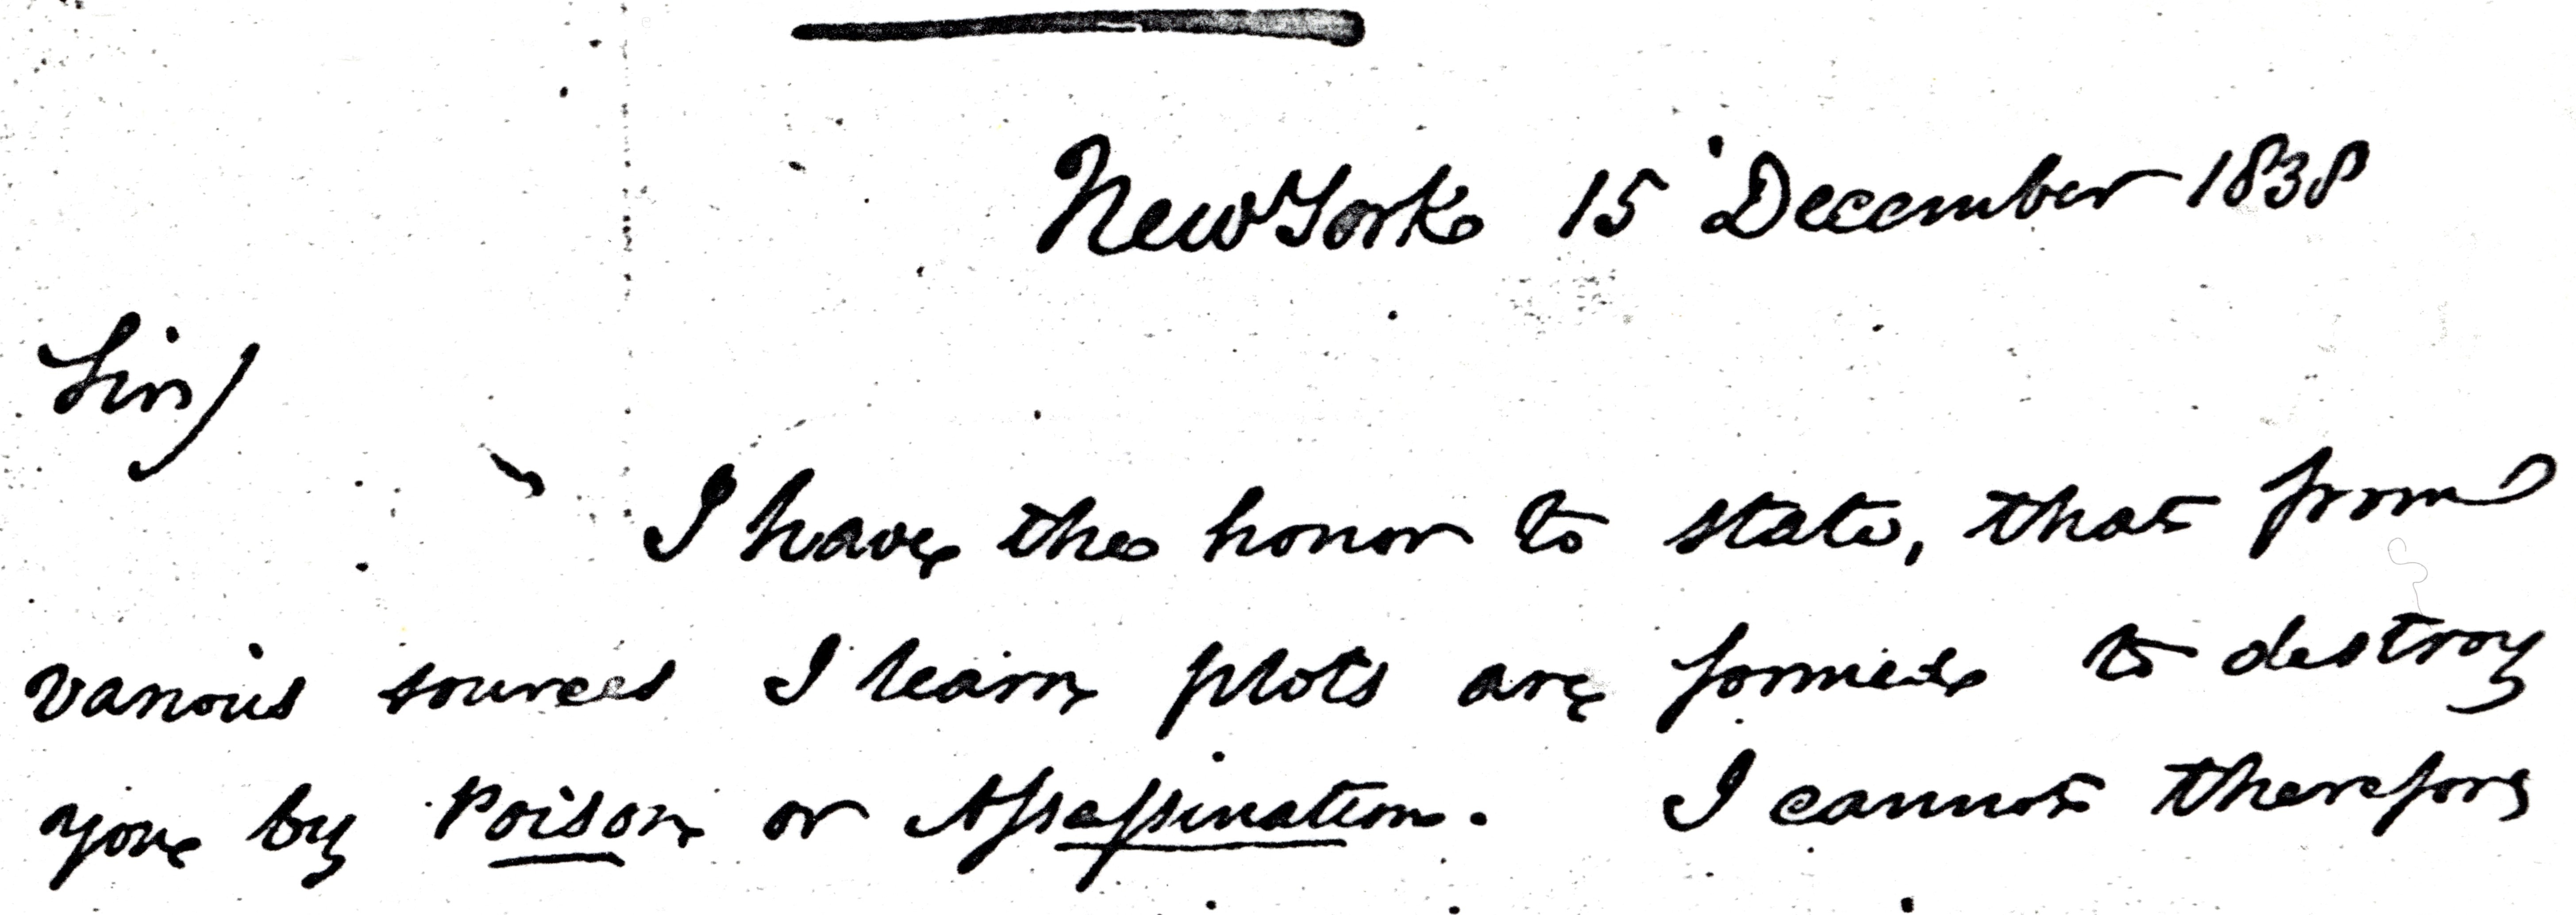 New York 15 December 1838
Sir,
I have the honor to state, that from
various sources I learn plots are formed to destroy
you by Poison or Assassination. I cannot therefore